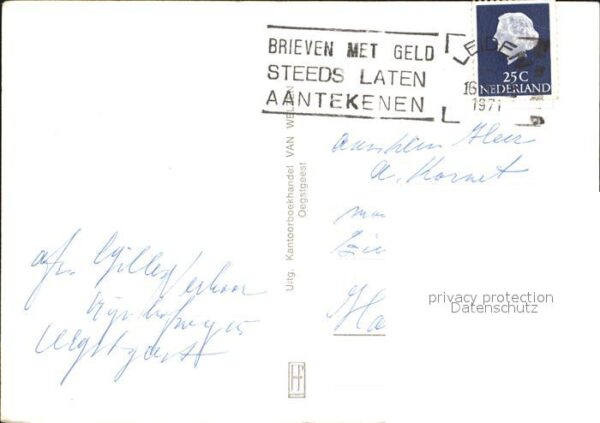 BRIEVEN MET GELD
STEEDS LATEN
AANTEKENEN
LEIDEN
16
1971
25 C
NEDERLAND
Uitg. Kantoorboekhandel VAN WELZEN
Oegstgeest
aan den Heer
A. Kornet
afz.
Oegstgeest
HF
privacy protection
Datenschutz